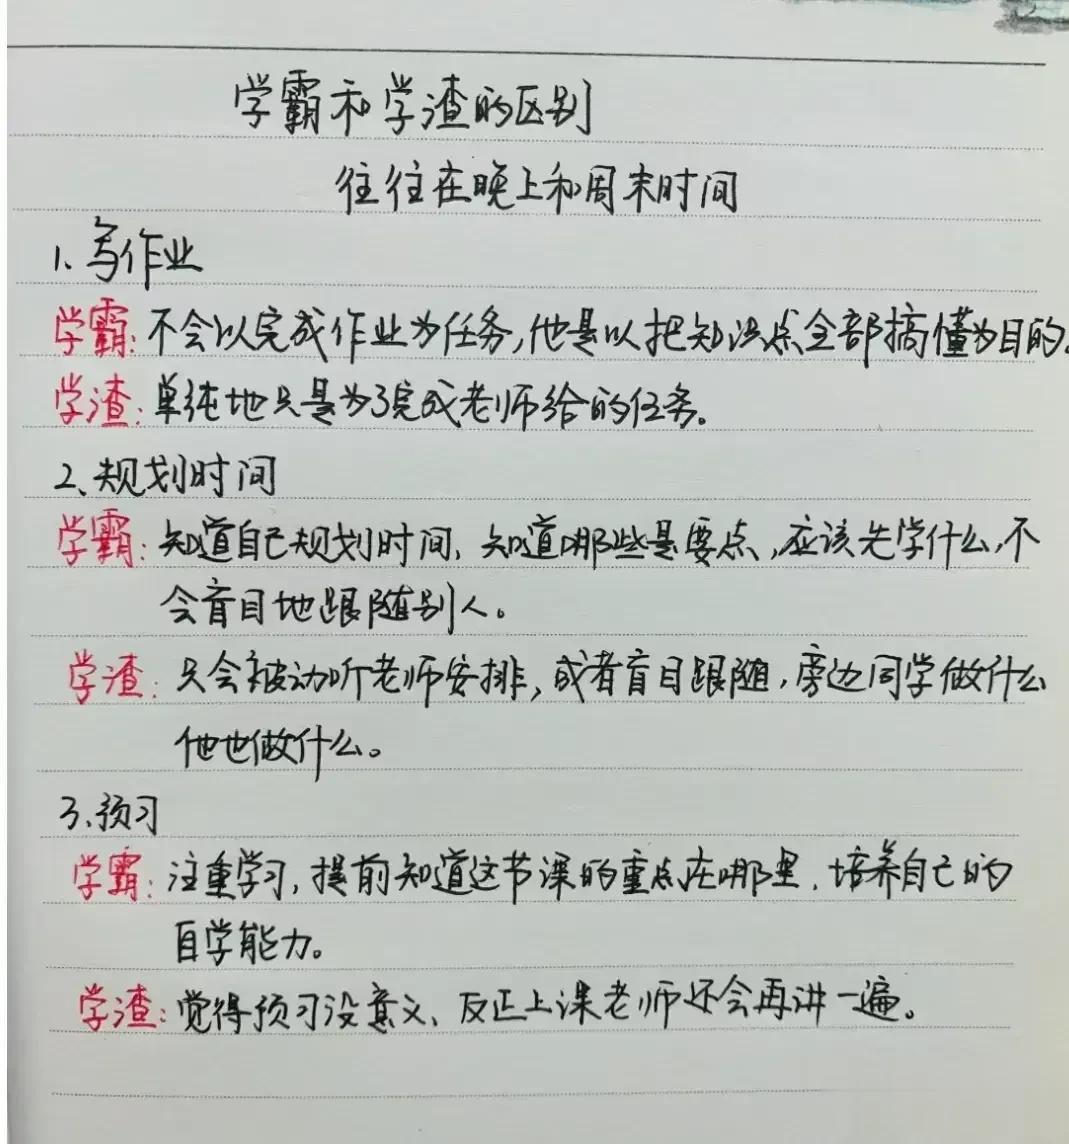 学霸和学渣的区别
往往在晚上和周末时间
1、写作业
学霸:不会以完成作业为任务,他是以把知识点全部搞懂为目的.
学渣:单纯地只是为了完成老师给的任务。
2、规划时间
学霸:知道自己规划时间,知道哪些是要点,应该先学什么,不
会盲目地跟随别人。
学渣:只会被动听老师安排,或者盲目跟随,旁边同学做什么
他也做什么。
3.预习
学霸:注重学习,提前知道这节课的重点在哪里.培养自己的
自学能力。
学渣:觉得预习没意义、反正上课老师还会再讲一遍。